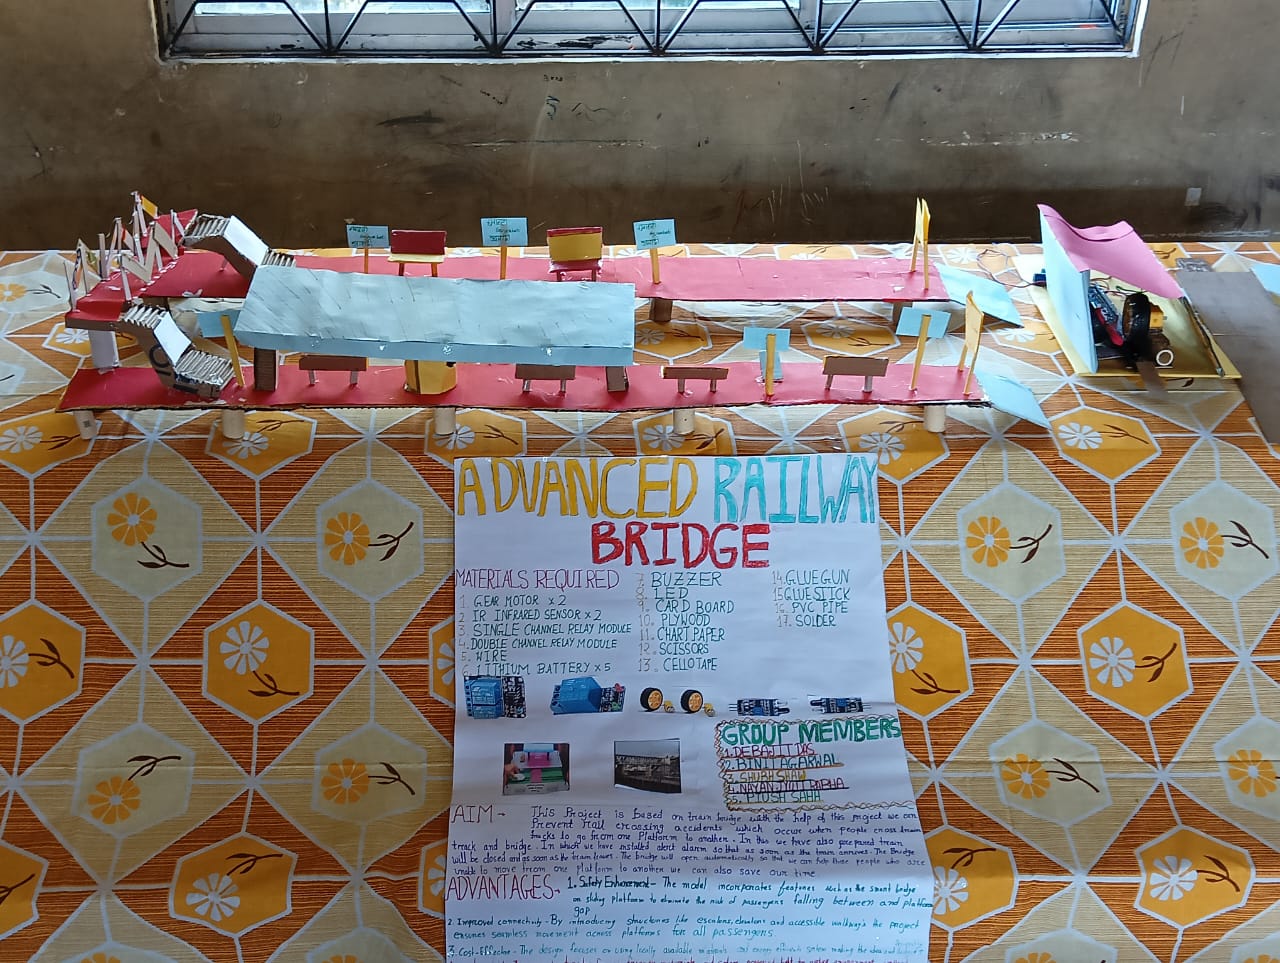 ADVANCED RAILWAY
BRIDGE
MATERIALS REQUIRED
1. GEAR MOTOR x 2
2. IR INFRARED SENSOR x 2
3. SINGLE CHANNEL RELAY MODULE
4. DOUBLE CHANNEL RELAY MODULE
5. WIRE
6. LITHIUM BATTERY x 5
7. BUZZER
8. LED
9. CARD BOARD
10. PLYWOOD
11. CHART PAPER
12. SCISSORS
13. CELLOTAPE
14. GLUE GUN
15 GLUE STICK
16. PVC PIPE
17. SOLDER
GROUP MEMBERS
1. DEBAJIT DAS
2. BINIT AGARWAL
3. SHUBH SHAW
4. NAYANJYOTI
5. PIYUSH SAHA
AIM - This Project is based on train bridge with the help of this project we can
Prevent Rail crossing accidents which occur when people cross train
tracks to go from one Platform to another. In this we have also prepared train
track and bridge. In which we have installed alert alarm so that as soon as the train arrives. The Bridge
will be closed and as soon as the train leaves. The bridge will open automatically so that we can help those people who are
unable to move from one platform to another we can also save our time.
ADVANTAGES - 1. Safety Enhancement - The model incorporates features such as the smart bridge
on sliding platform to eliminate the risk of passengers falling between and platform
gap
2. Improved connectivity - By introducing structures like escalators, elevators and accessible walkways the project
ensures seamless movement across platforms for all passengers.
3. Cost-Effective - The design focuses on using locally available materials and energy efficient system making the